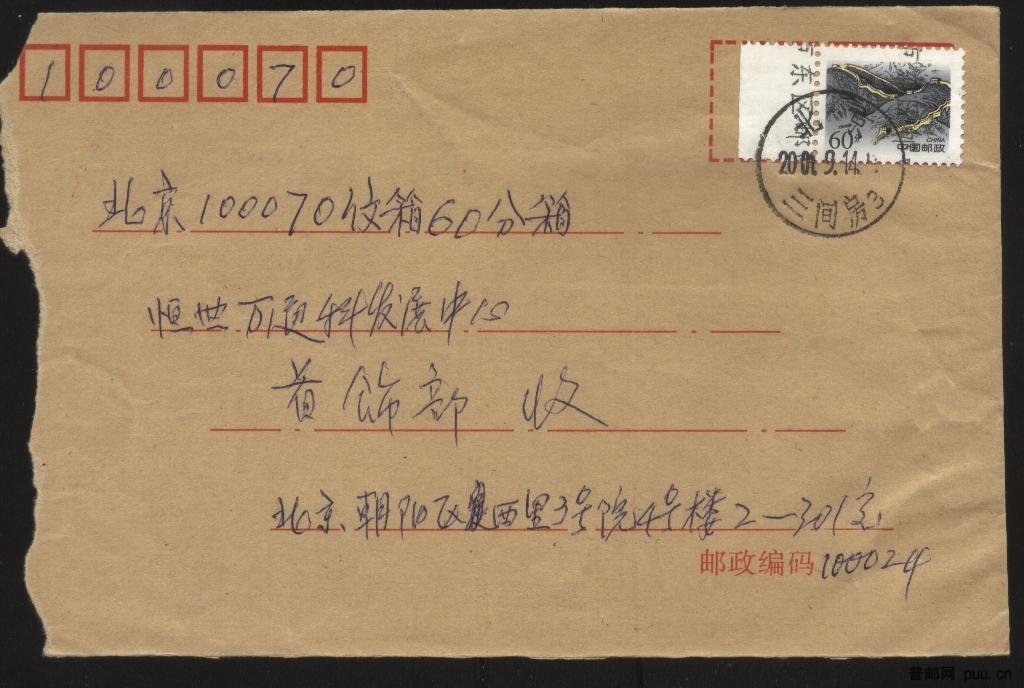 100070
市东区邮
60分
CHINA
中国邮政
北京
2001.9.14
三间房3
北京100070信箱60分箱
恒世万通科发展中心
首饰部 收
北京朝阳区定西里3号院4号楼2-301室
邮政编码100024
普邮网 puu.cn